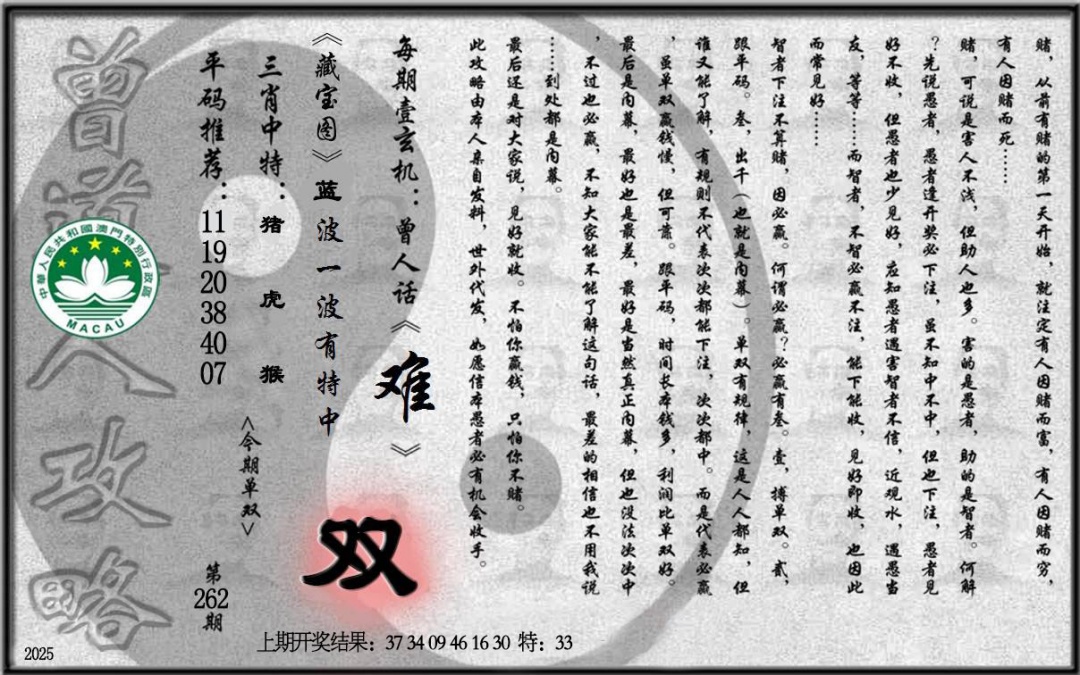 赌，从前有赌的第一天开始，就注定有人因赌而富，有人因赌而穷，
有人因赌而死……
赌，可说是害人不浅，但助人也多。害的是愚者，助的是智者。何解
？先说愚者，愚者逢开奖必下注，虽不知中不中，但也下注，愚者见
好不收，但愚者也少见好，应知愚者遇害智者不信，近观水，遇愚当
友，等等……而智者，不智必赢不注，能下能收，见好即收，也因此
而常见好……
智者下注不算赌，因必赢。何谓必赢？必赢有叁。壹，搏单双。贰，
跟平码。叁，出千（也就是内幕）。单双有规律，这是人人都知，但
谁又能了解，有规则不代表次次都能下注，次次都中。而是代表必赢
，虽单双赢钱慢，但可靠。跟平码，时间长本钱多，利润比单双好。
最后是内幕，最好也是最差，最好是当然真正内幕，但也没法次次中
，不过也必赢，不知大家能不能了解这句话，最差的相信也不用我说
……到处都是内幕。
最后还是对大家说，见好就收。不怕你赢钱，只怕你不赌。
此攻略由本人亲自发料，世外代发，如愿信本愚者必有机会收手。
每期壹玄机：曾人话《难》
《藏宝图》蓝波一波有特中
双
三肖中特：猪 虎 猴
<今期单双>
平码推荐：11 19 20 38 40 07
第262期
曾道人攻略
中華人民共和國澳門特別行政區
MACAU
上期开奖结果：37 34 09 46 16 30 特：33
2025